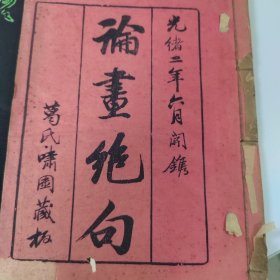 光緒二年六月開鐫
論畫絕句
葛氏嘯園藏板